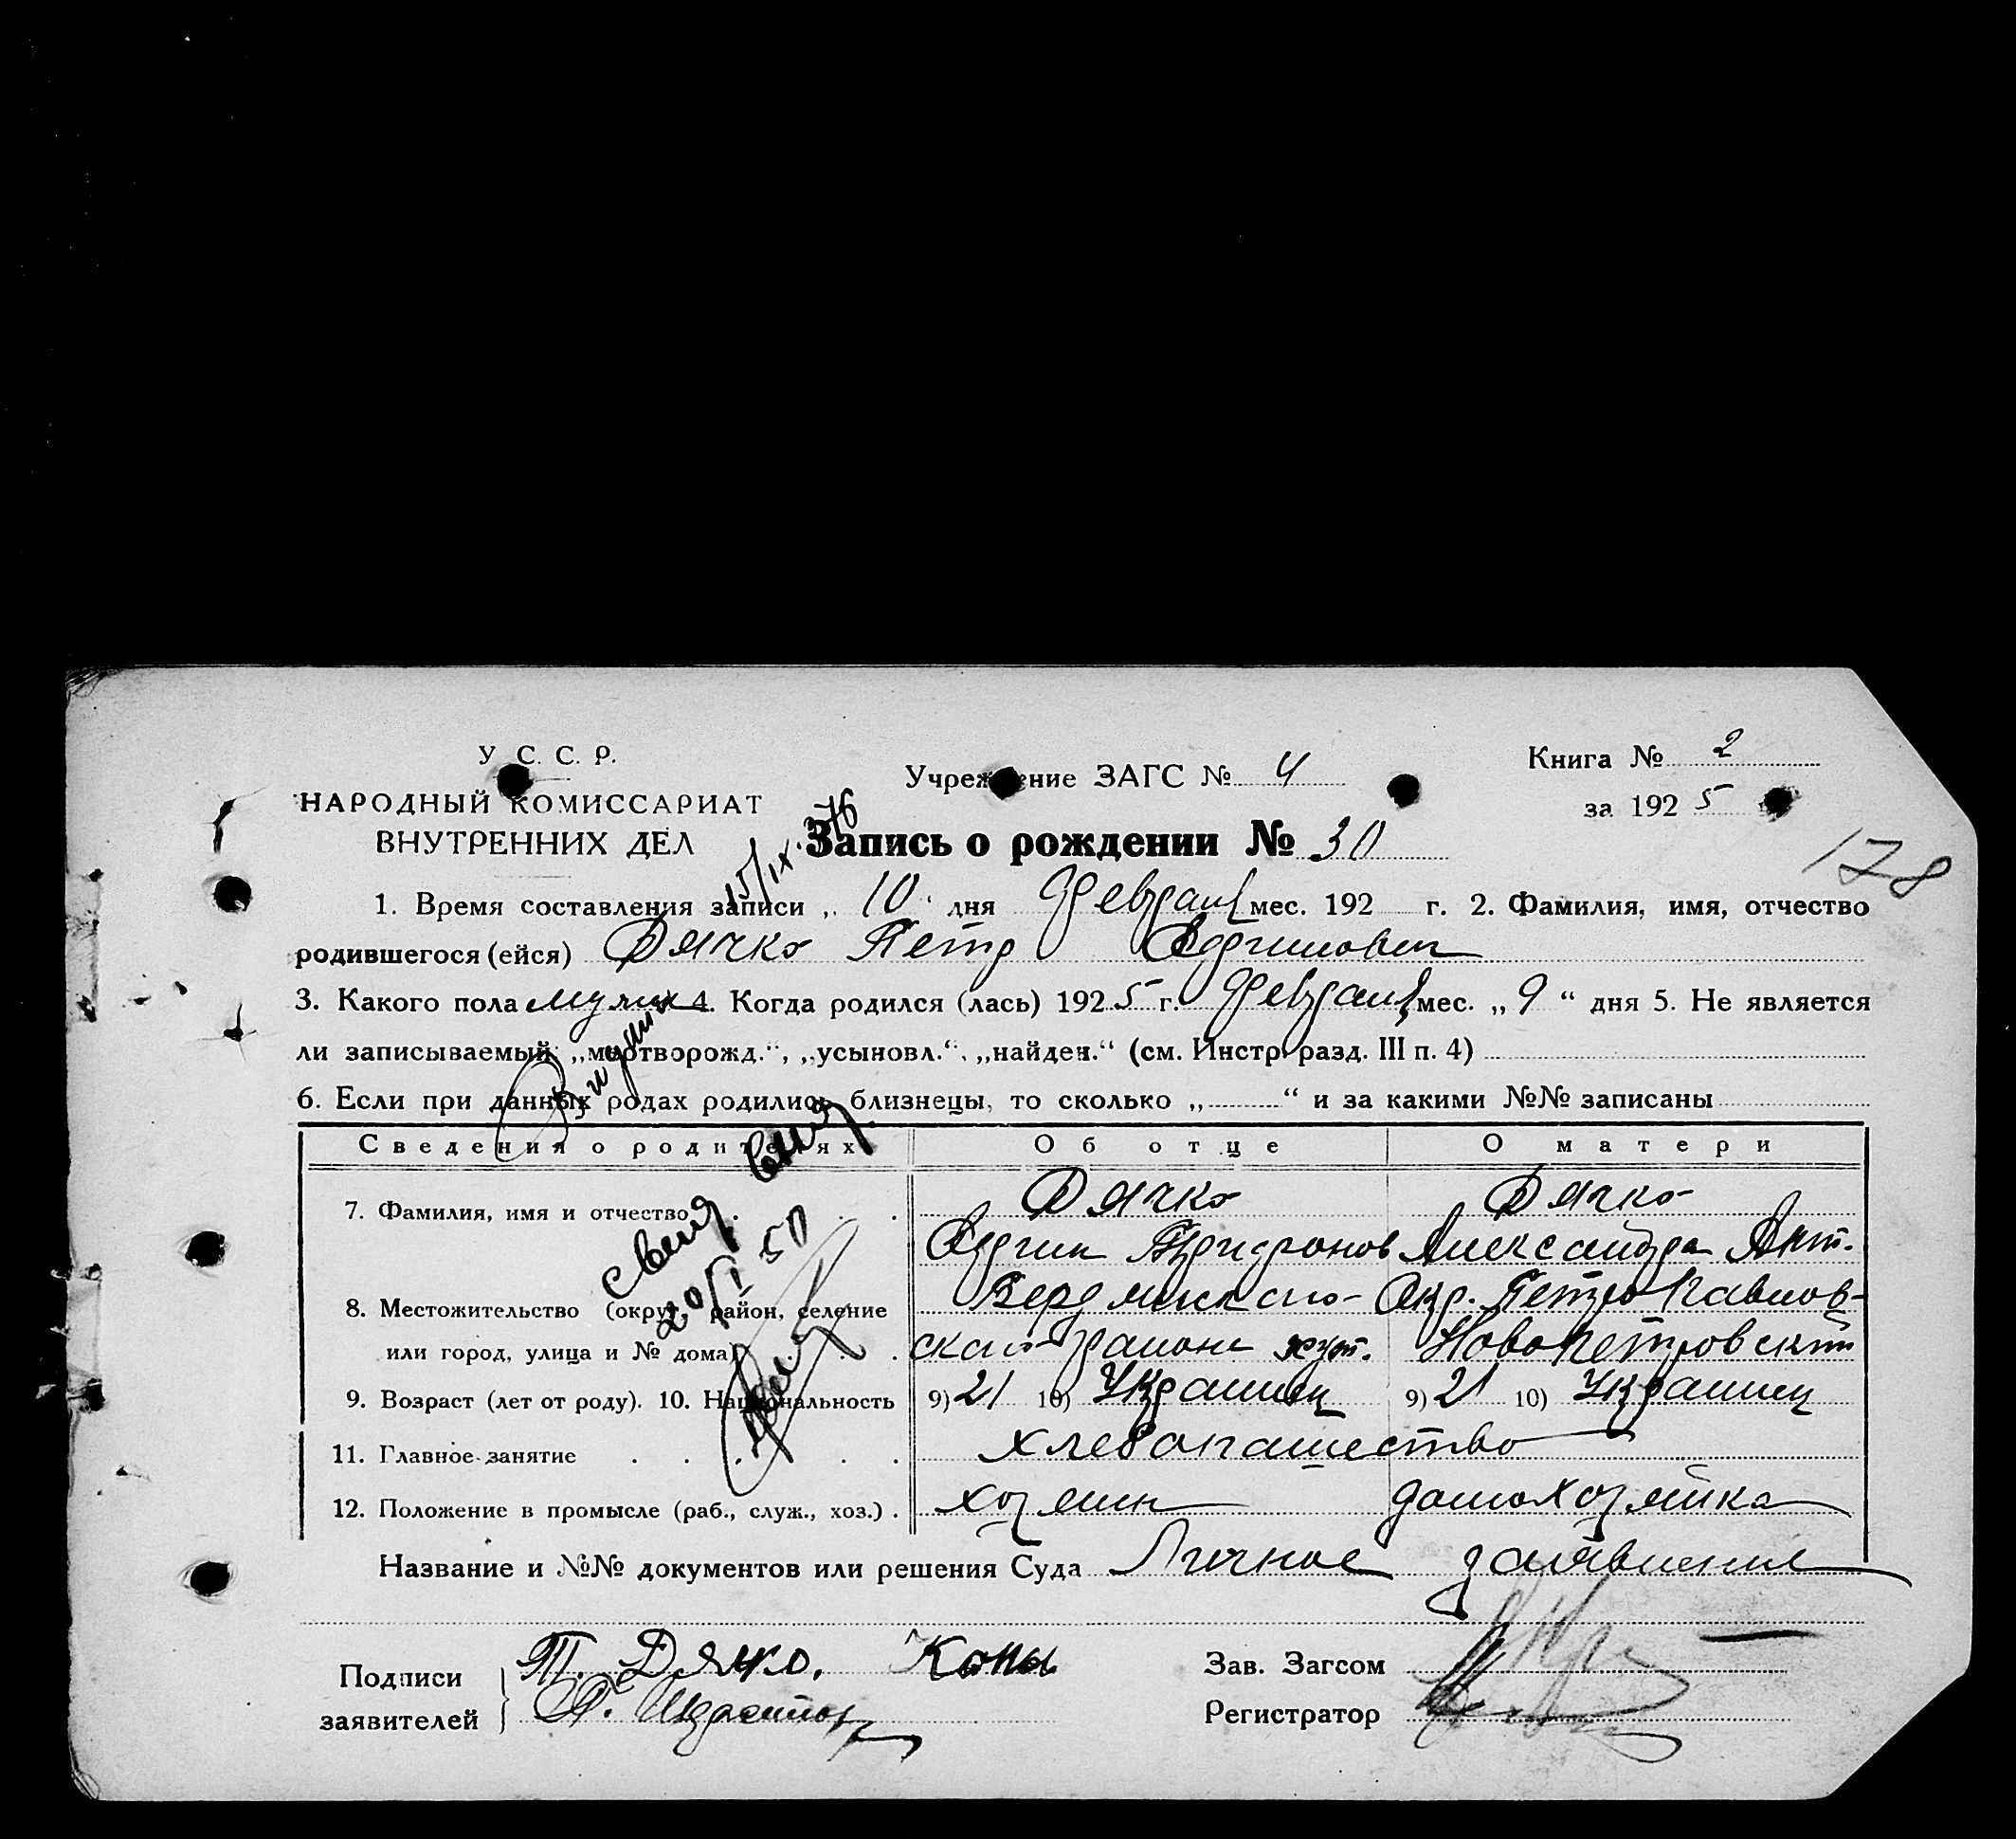 У. С. С. Р.
НАРОДНЫЙ КОМИССАРИАТ
ВНУТРЕННИХ ДЕЛ
Учреждение ЗАГС № 4
Книга № 2
за 1925
15/IX. 376
Запись о рождении № 30
178
1. Время составления записи „ 10 " дня Февраля мес. 192 г. 2. Фамилия, имя, отчество
родившегося (ейся) Дячко Петр Ефимович
3. Какого пола мужск 4. Когда родился (лась) 1925 г. Февраля мес. „ 9 “ дня 5. Не является
ли записываемый: „мертворожд.“, „усыновл.“, „найден.“ (см. Инстр. разд. III п. 4)
6. Если при данных родах родились близнецы, то сколько „ “ и за какими №№ записаны
Сведения о родителях Об отце О матери
7. Фамилия, имя и отчество Дячко Дячко
Ефим Трифонов Александра Ант.
8. Местожительство (округ, район, селение Бердянского Окр. Петропавлов-
или город, улица и № дома) ского района хут. Новопетровский
9. Возраст (лет от роду). 10. Национальность 9) 21 10) Украинец 9) 21 10) Украинец
11. Главное занятие хлебопашество
12. Положение в промысле (раб., служ., хоз.) хозяин домохозяйка
Название и №№ документов или решения Суда Личное заявление
20/I 50
Подписи
заявителей
Т. Дячко.
Зав. Загсом
Регистратор